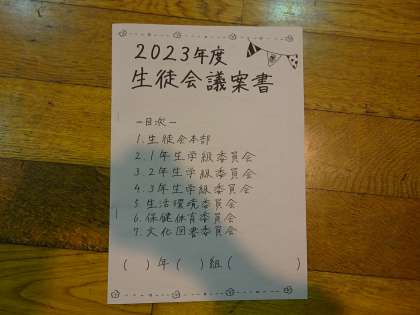 2023年度
生徒会議案書
－目次－
1.生徒会本部
2.1年生学級委員会
3.2年生学級委員会
4.3年生学級委員会
5 生活環境委員会
6.保健体育委員会
7.文化図書委員会
( )年( )組( )